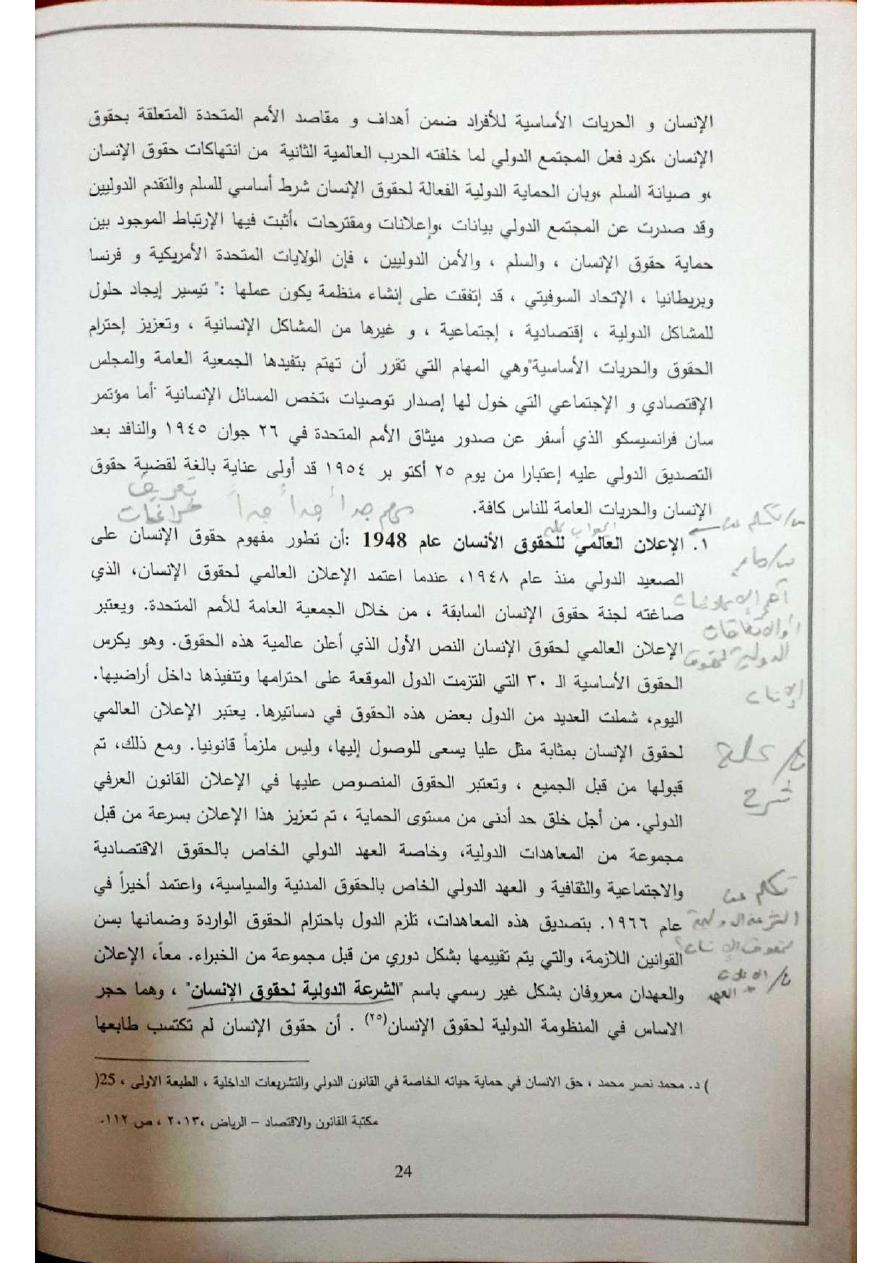 الإنسان و الحريات الأساسية للأفراد ضمن أهداف و مقاصد الأمم المتحدة المتعلقة بحقوق
الإنسان ،كرد فعل المجتمع الدولي لما خلفته الحرب العالمية الثانية من انتهاكات حقوق الإنسان
،و صيانة السلم ،وبان الحماية الدولية الفعالة لحقوق الإنسان شرط أساسي للسلم والتقدم الدوليين
وقد صدرت عن المجتمع الدولي بيانات ،وإعلانات ومقترحات ،أثبت فيها الإرتباط الموجود بين
حماية حقوق الإنسان ، والسلم ، والأمن الدوليين ، فإن الولايات المتحدة الأمريكية و فرنسا
وبريطانيا ، الإتحاد السوفيتي ، قد إتفقت على إنشاء منظمة يكون عملها :" تيسير إيجاد حلول
للمشاكل الدولية ، إقتصادية ، إجتماعية ، و غيرها من المشاكل الإنسانية ، وتعزيز إحترام
الحقوق والحريات الأساسية"وهي المهام التي تقرر أن تهتم بتفيدها الجمعية العامة والمجلس
الإقتصادي و الإجتماعي التي خول لها إصدار توصيات ،تخص المسائل الإنسانية .أما مؤتمر
سان فرانسيسكو الذي أسفر عن صدور ميثاق الأمم المتحدة في ٢٦ جوان ١٩٤٥ والنافد بعد
التصديق الدولي عليه إعتبارا من يوم ٢٥ أكتو بر ١٩٥٤ قد أولى عناية بالغة لقضية حقوق
الإنسان والحريات العامة للناس كافة.
مهم جداً جداً جداً
تعريف
فراغات
س/ تكلم عن
الجواب عليه
١. الإعلان العالمي للحقوق الأنسان عام 1948 :أن تطور مفهوم حقوق الإنسان على
الصعيد الدولي منذ عام ١٩٤٨، عندما اعتمد الإعلان العالمي لحقوق الإنسان، الذي
صاغته لجنة حقوق الإنسان السابقة ، من خلال الجمعية العامة للأمم المتحدة. ويعتبر
الإعلان العالمي لحقوق الإنسان النص الأول الذي أعلن عالمية هذه الحقوق. وهو يكرس
الحقوق الأساسية الـ ٣٠ التي التزمت الدول الموقعة على احترامها وتنفيذها داخل أراضيها.
اليوم، شملت العديد من الدول بعض هذه الحقوق في دساتيرها. يعتبر الإعلان العالمي
لحقوق الإنسان بمثابة مثل عليا يسعى للوصول إليها، وليس ملزماً قانونيا. ومع ذلك، تم
قبولها من قبل الجميع ، وتعتبر الحقوق المنصوص عليها في الإعلان القانون العرفي
الدولي. من أجل خلق حد أدنى من مستوى الحماية ، تم تعزيز هذا الإعلان بسرعة من قبل
مجموعة من المعاهدات الدولية، وخاصة العهد الدولي الخاص بالحقوق الاقتصادية
والاجتماعية والثقافية و العهد الدولي الخاص بالحقوق المدنية والسياسية، واعتمد أخيراً في
عام ١٩٦٦. بتصديق هذه المعاهدات، تلزم الدول باحترام الحقوق الواردة وضمانها بسن
القوانين اللازمة، والتي يتم تقييمها بشكل دوري من قبل مجموعة من الخبراء. معاً، الإعلان
والعهدان معروفان بشكل غير رسمي باسم "الشرعة الدولية لحقوق الإنسان" ، وهما حجر
الاساس في المنظومة الدولية لحقوق الإنسان(٢٥) . أن حقوق الإنسان لم تكتسب طابعها
س/ ماهي
أهم الإعلانات
أو الاتفاقات
الدولية لحقوق
الإنسان
شرح
تكلم عن
الشرعة الدولية
لحقوق الإنسان؟
ج/ الاعلان
+ العهد
) د. محمد نصر محمد ، حق الانسان في حماية حياته الخاصة في القانون الدولي والتشريعات الداخلية ، الطبعة الاولى ، 25(
مكتبة القانون والاقتصاد – الرياض ،٢٠١٣ ، ص ١١٢.
24